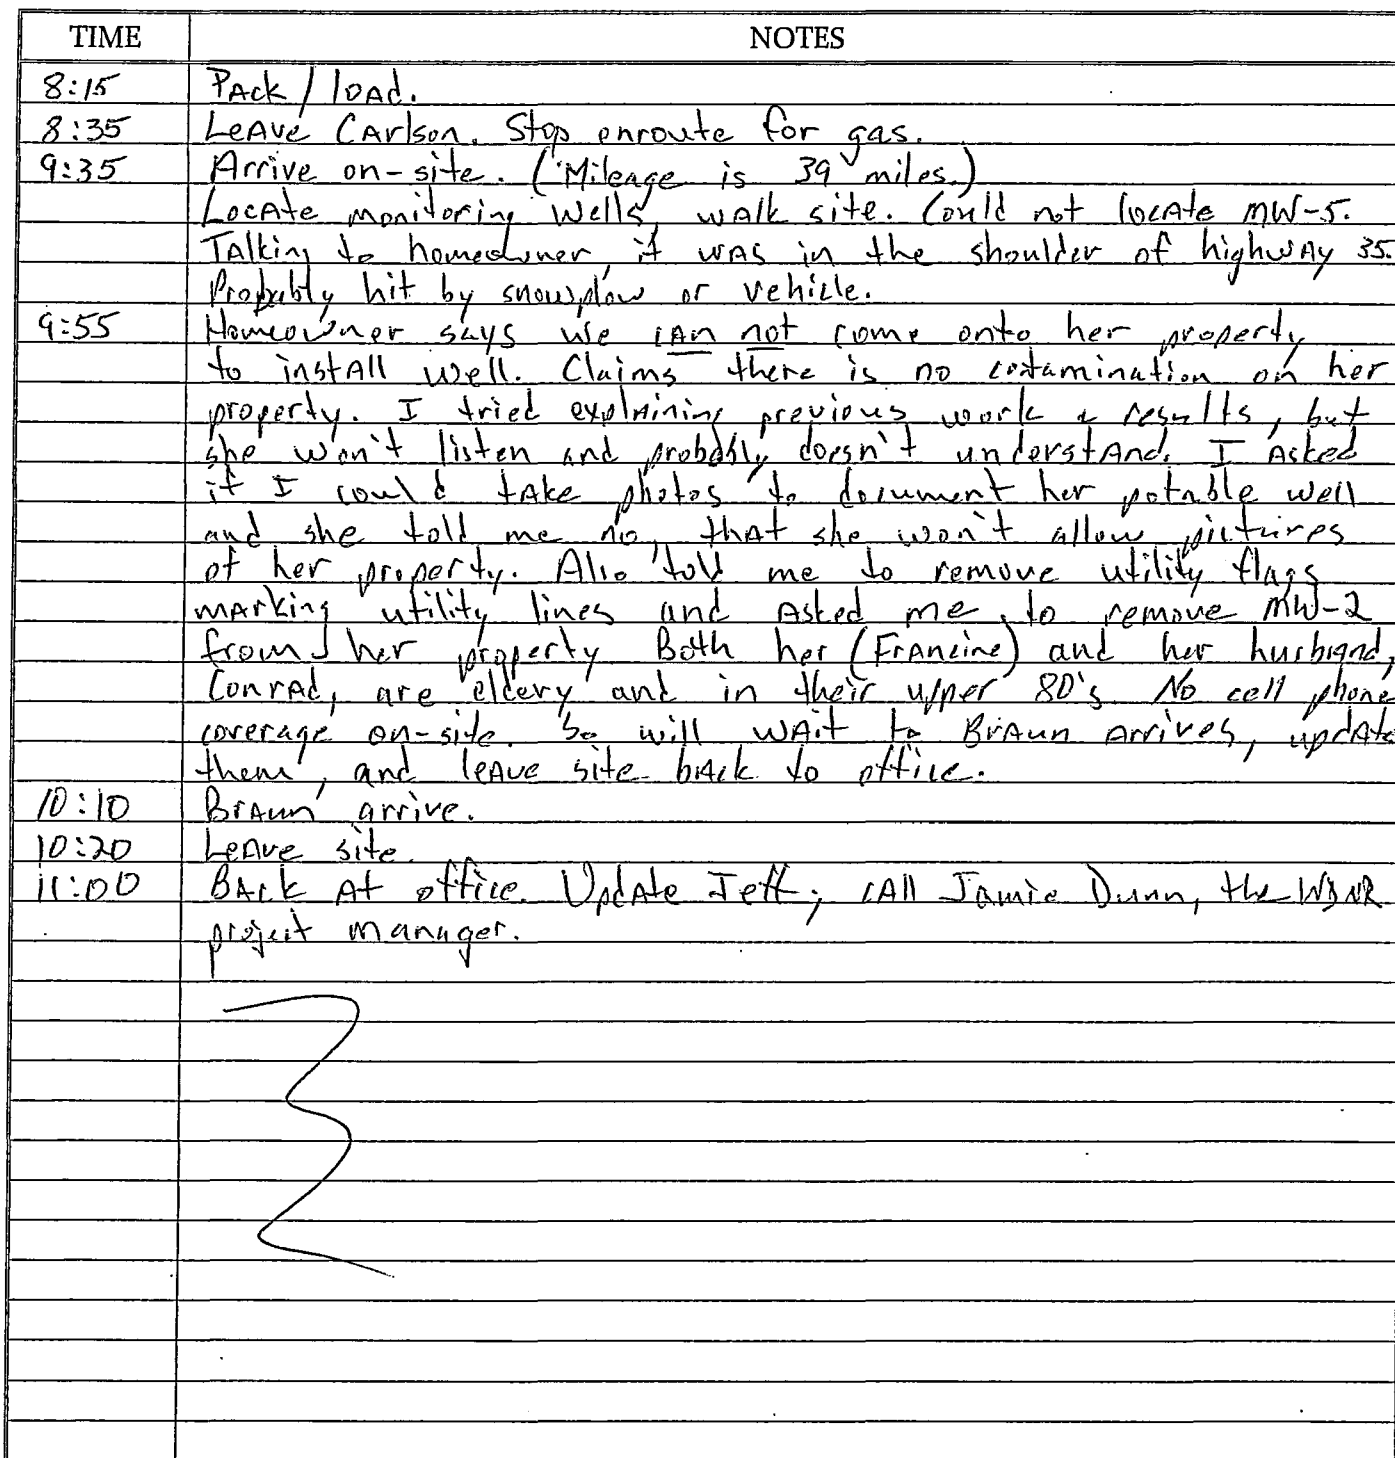 TIME NOTES
8:15 Pack / load.
8:35 Leave Carlson. Stop enroute for gas.
9:35 Arrive on-site. (Mileage is 39 miles.)
Locate monitoring wells, walk site. Could not locate MW-5.
Talking to homeowner, it was in the shoulder of highway 35.
Probably hit by snowplow or vehicle.
9:55 Homeowner says we can not come onto her property
to install well. Claims there is no contamination on her
property. I tried explaining previous work & results, but
she won't listen and probably doesn't understand. I asked
if I could take photos to document her potable well
and she told me no, that she won't allow pictures
of her property. Also told me to remove utility flags
marking utility lines and asked me to remove MW-2
from her property Both her (Francine) and her husband,
Conrad, are eldery and in their upper 80's No cell phone
coverage on-site. So will wait to Braun arrives, update
them, and leave site back to office.
10:10 Braun arrive.
10:20 Leave site.
11:00 Back at office. Update Jeff; call Jamie Dunn, the WDNR
project manager.